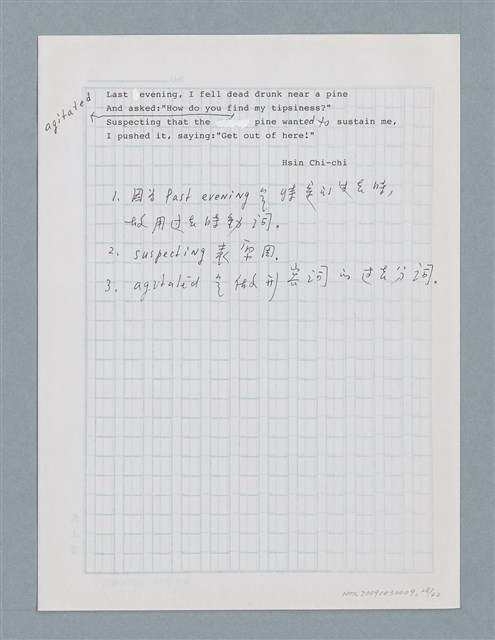 Last evening, I fell dead drunk near a pine
And asked:"How do you find my tipsiness?"
agitated
Suspecting that the pine wanted to sustain me,
I pushed it, saying:"Get out of here!"
Hsin Chi-chi
1. 因為 last evening 是特定的過去時,
故用過去時動詞。
2. suspecting 表原因.
3. agitated 是做形容詞的過去分詞.